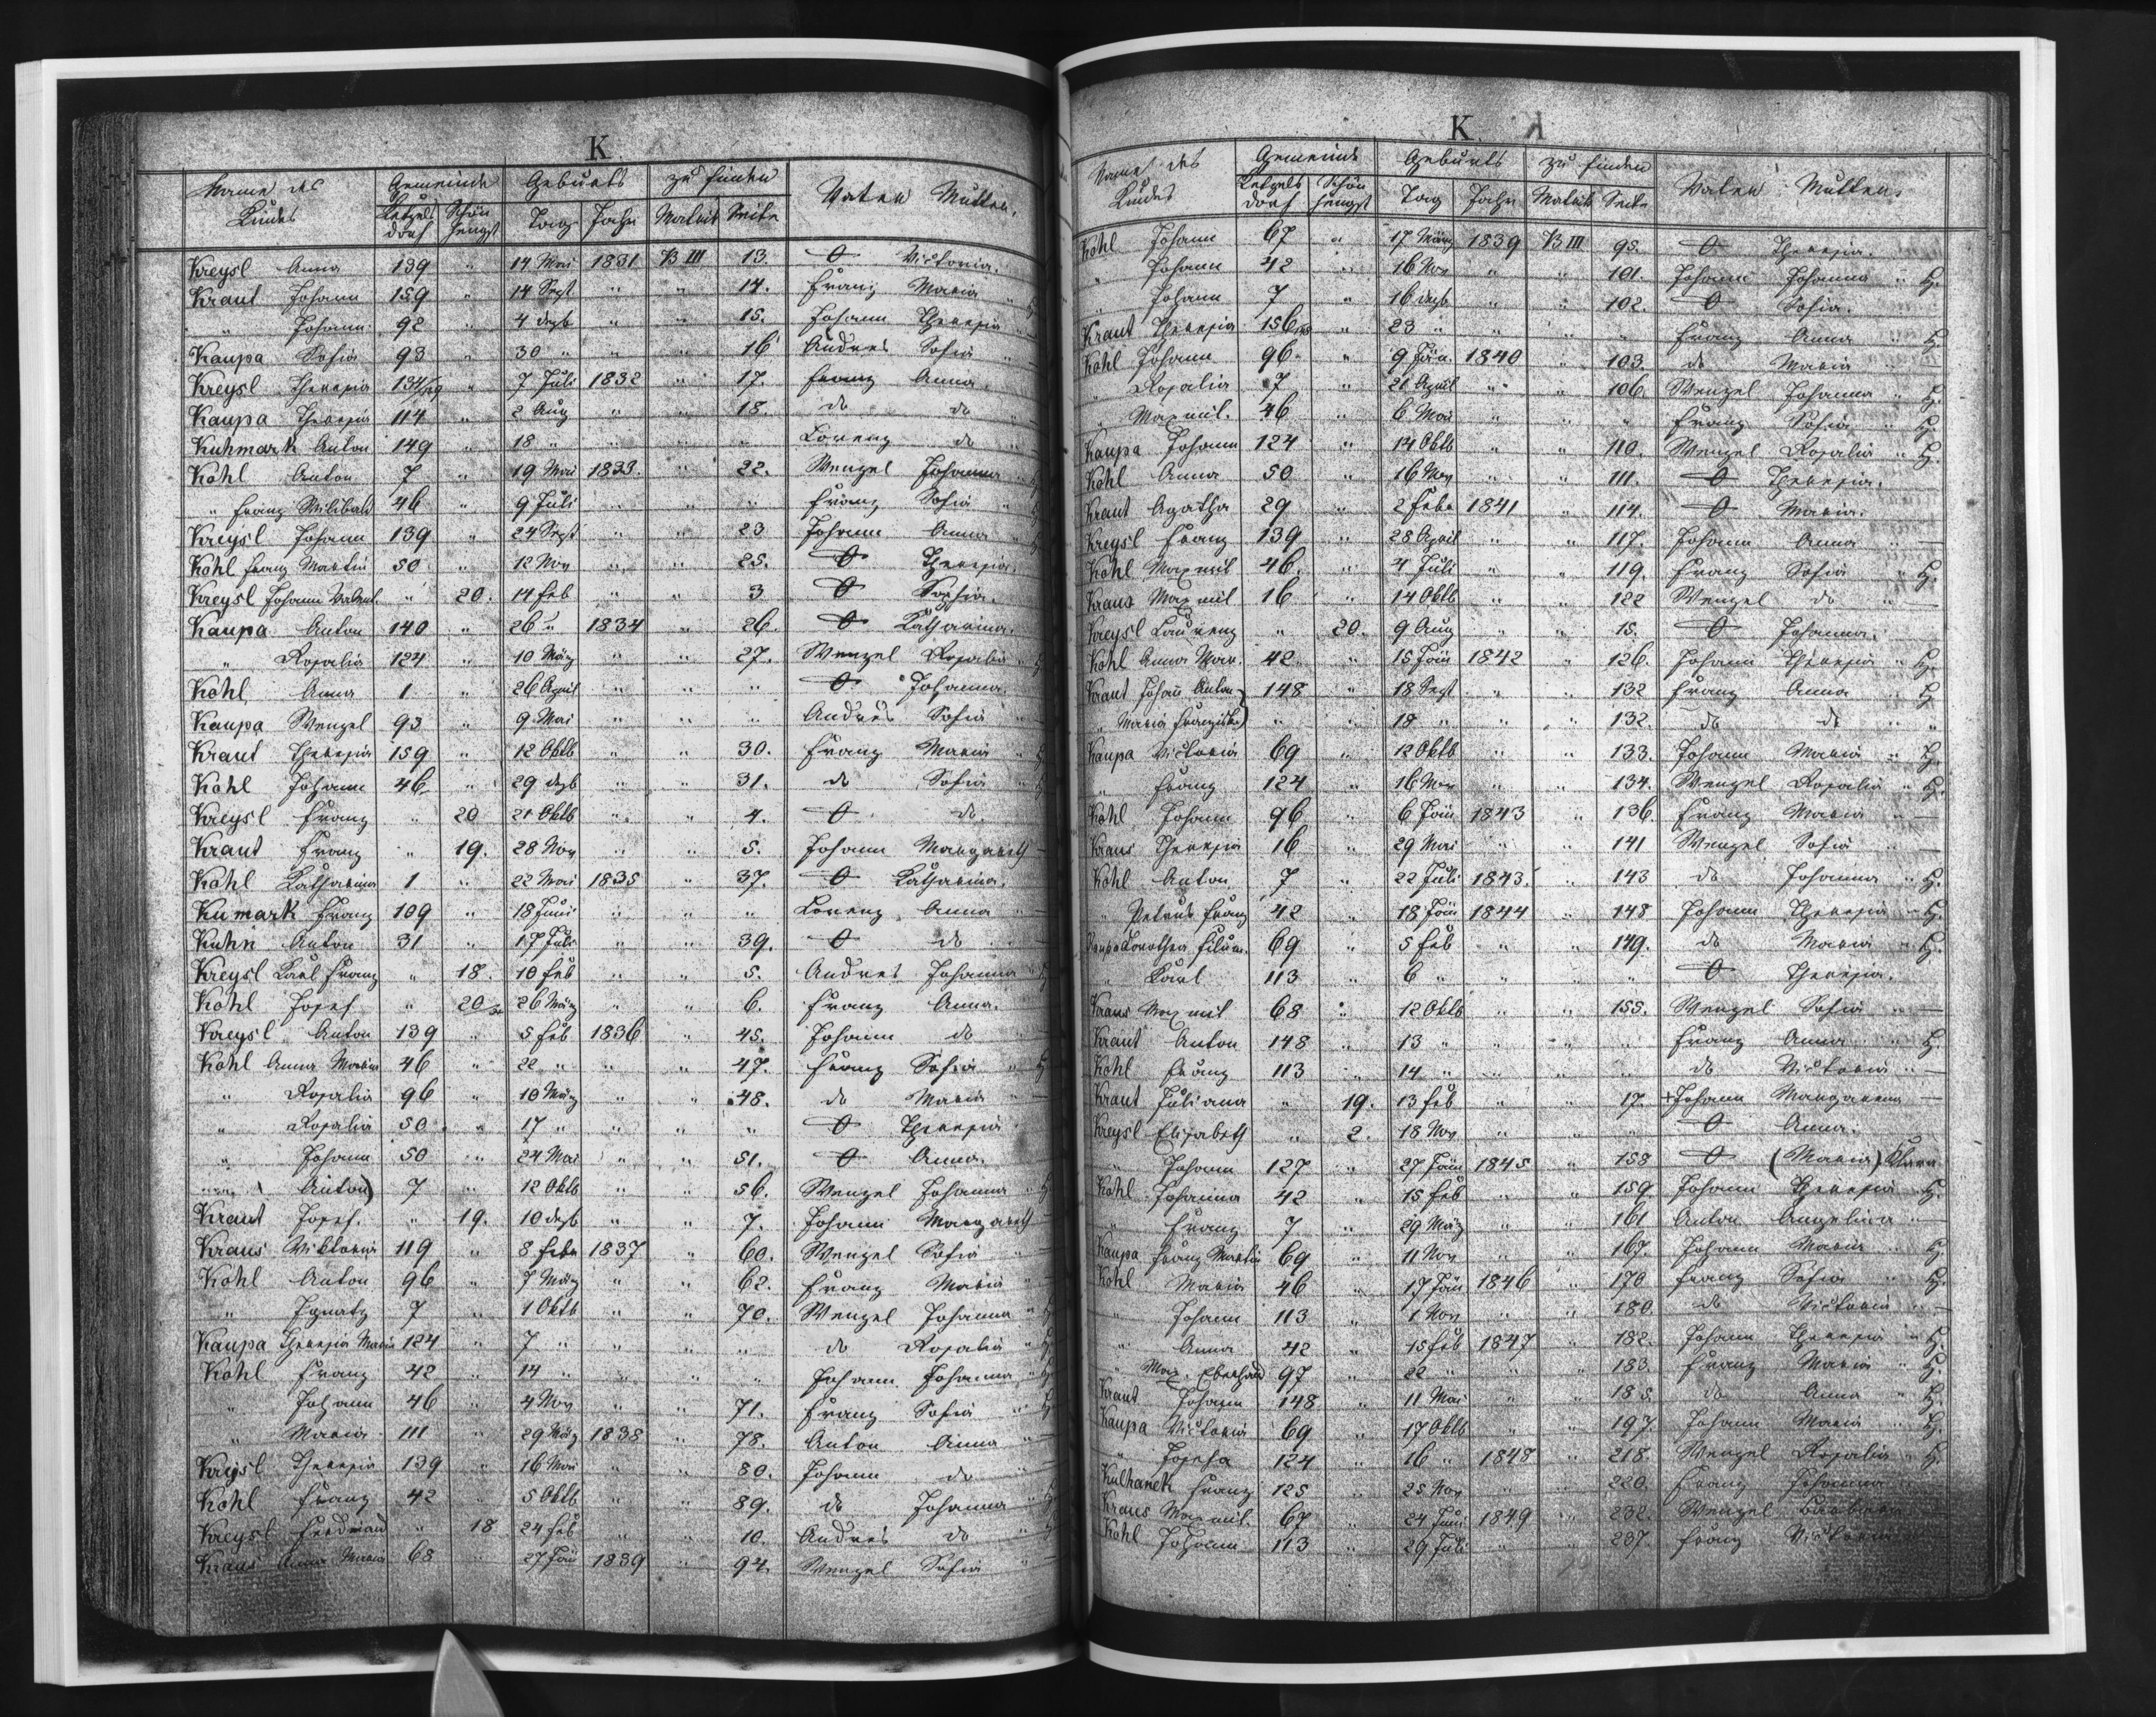 K
Name des Kindes Gemeinde Geburts zu finden Vater Mutter
Ketzelsdorf Schönhengst Tag Jahr Matrik Seite
Kreysl Anna 139 " 14 Mai 1831 B III 13. O Victoria.
Kraut Johann 159 " 14 Sept " " 14. Franz Maria "
" Johann 92 " 4 dezb " " 15. Johann Theresia "
Kaupa Sofia 93 " 30 " " " 16 Andres Sofia "
Kreysl Theresia 134/159 " 7 Juli 1832 " 17. Franz Anna.
Kaupa Theresia 114 " 2 Aug " " 18. do do "
Kuhmark Anton 149 " 18 " " " " Lorenz do "
Kohl Anton 7 " 19 Mai 1833. " 22. Wenzel Johanna
" Franz Wilibald 46 " 9 Juli " " " Franz Sofia "
Kreysl Johann 139 " 24 Sept " " 23 Johann Anna "
Kohl Franz Martin 50 " 12 Nov " " 25. O Theresia.
Kreysl Johann Valent. " 20. 14 Feb " " 3 O Sophia.
Kaupa Anton 140 " 26 " 1834 " 26. O Katharina.
" Rosalia 124 " 10 März " " 27. Wenzel Rosalia "
Kohl Anna 1 " 26 April " " " O Johanna.
Kaupa Wenzel 93 " 9 Mai " " " Andres Sofia " —
Kraut Theresia 159 " 12 Oktb " " 30. Franz Maria "
Kohl Johann 46 " 29 dezb " " 31. do Sofia "
Kreysl Franz " 20 21 Oktb " " 4. O do.
Kraut Franz " 19. 28 Nov " " 5. Johann Margareth —
Kohl Katharina 1 " 22 Mai 1835 " 37. O Katharina.
Kumark Franz 109 " 18 Juni " " " Lorenz Anna " —
Kuhn Anton 31 " 17 Juli " " 39. O do
Kreysl Karl Franz " 18. 10 Feb " " 5. Andres Johanna "
Kohl Josef " 20 26 März " " 6. Franz Anna.
Kreysl Anton 139 " 5 Feb 1836 " 45. Johann do " —
Kohl Anna Maria 46 " 22 " " " 47. Franz Sofia "
" Rosalia 96 " 10 März " " 48. do Maria " —
" Rosalia 50 " 17 " " " " O Theresia
" Johann 50 " 24 Mai " " 51. O Anna.
" Anton) 7 " 12 Oktb " " 56. Wenzel Johanna "
Kraut Josef. " 19. 10 dezb " " 7. Johann Margareth
Kraus Viktoria 119 " 8 Febr 1837 " 60. Wenzel Sofia " —
Kohl Anton 96 " 7 März " " 62. Franz Maria " —
" Ignatz 7 " 1 Oktb " " 70. Wenzel Johanna "
Kaupa Theresia Maria 124 " 7 " " " " do Rosalia "
Kohl Franz 42 " 14 " " " " Johann Johanna "
" Johann 46 " 4 Nov " " 71. Franz Sofia "
" Maria 111 " 29 März 1838 " 78. Anton Anna " —
Kreysl Theresia 139 " 16 Mai " " 80. Johann do " —
Kohl Franz 42 " 5 Oktb " " 89. do Johanna "
Kreysl Ferdinand " 18 24 Feb " " 10. Andres do "
Kraus Anna Maria 68 " 27 Jän 1839 " 94. Wenzel Sofia —
K
Name des Kindes Gemeinde Geburts zu finden Vater Mutter.
Ketzelsdorf Schönhengst Tag Jahr Matrik Seite
Kohl Johann 67 " 17 März 1839 B III 95. O Theresia.
" Johann 42 " 16 Nov " " 101. Johann Johanna " H.
" Johann 7 " 16 dezb " " 102. O Sofia.
Kraut Theresia 156 " 23 " " " " Franz Anna " H
Kohl Johann 96 " 9 Jän. 1840 " 103. do Maria —
" Rosalia 7 " 21 April " " 106. Wenzel Johanna " H.
" Maxmil. 46 " 6 Mai " " " Franz Sofia " H.
Kaupa Johann 124 " 14 Oktb " " 110. Wenzel Rosalia " H.
Kohl Anna 50 " 16 Nov " " 111. O Theresia.
Kraut Agatha 29 " 2 Febr 1841 " 114. O Maria.
Kreysl Franz 139 " 28 April " " 117. Johann Anna " —
Kohl Maxmil 46. " 4 Juli " " 119. Franz Sofia " H.
Kraus Maxmil 16 " 14 Oktb " " 122 Wenzel do " —
Kreysl Laurenz " 20. 9 Aug " " 15. O Johanna.
Kohl Anna Mar. 42 " 15 Jän 1842 " 126. Johann Theresia " H.
Kraut Johann Anton) 148 " 18 Sept " " 132 Franz Anna " H
" Maria Franziska) " " 18 " " " 132. do do " "
Kaupa Victoria 69 " 12 Oktb " " 133. Johann Maria " H.
" Franz 124 " 16 Nov " " 134. Wenzel Rosalia " H.
Kohl Johann 96 " 6 Jän 1843 " 136. Franz Maria " —
Kraus Theresia 16 " 29 Mai " " 141 Wenzel Sofia " —
Kohl Anton 7 " 22 Juli 1843. " 143 do Johanna " H.
" Petrus Franz 42 " 18 Jän 1844 " 148 Johann Theresia " H.
Kaupa Dorothea Filum. 69 " 5 Feb " " 149. do Maria " H.
" Karl 113 " 6 " " " " O Theresia.
Kraus Maxmil 68 " 12 Oktb " " 155. Wenzel Sofia " —
Kraut Anton 148 " 13 " " " " Franz Anna " H.
Kohl Franz 113 " 14 " " " " do Victoria " —
Kraut Juliana " 19. 13 Feb " " 17. +Johann Margarena —
Kreysl Elisabeth " 2. 18 Nov " " " O Anna.
" Johann 127 " 27 Jän 1845 " 158 O (Maria) Klara
Kohl Johanna 42 " 15 Feb " " 159. Johann Theresia " H.
" Franz 7 " 29 März " " 161 Anton Angelina " —
Kaupa Franz Martin 69 " 11 Nov " " 167. Johann Maria " H.
Kohl Maria 46 " 17 Jän 1846 " 170 Franz Sofia " H.
" Johann 113 " 1 Nov " " 180. do Victoria " —
" Anna 42 " 15 Feb 1847 " 182. Johann Theresia " H.
" Max. Eberhard 97 " 22 " " " 183. Franz Maria " H.
Kraut Johann 148 " 11 Mai " " 185. do Anna " H.
Kaupa Victoria 69 " 17 Oktb " " 197. Johann Maria " H.
" Josefa 124 " 16 " 1848 " 218. Wenzel Rosalia " H.
Kulhanek Franz 125 " 25 Nov " " 220. Franz Johanna
Kraus Maxmil. 67 " 24 Juni 1849 " 232. Wenzel Barbara
Kohl Johann 113 " 29 Juli " " 237. Franz Victoria